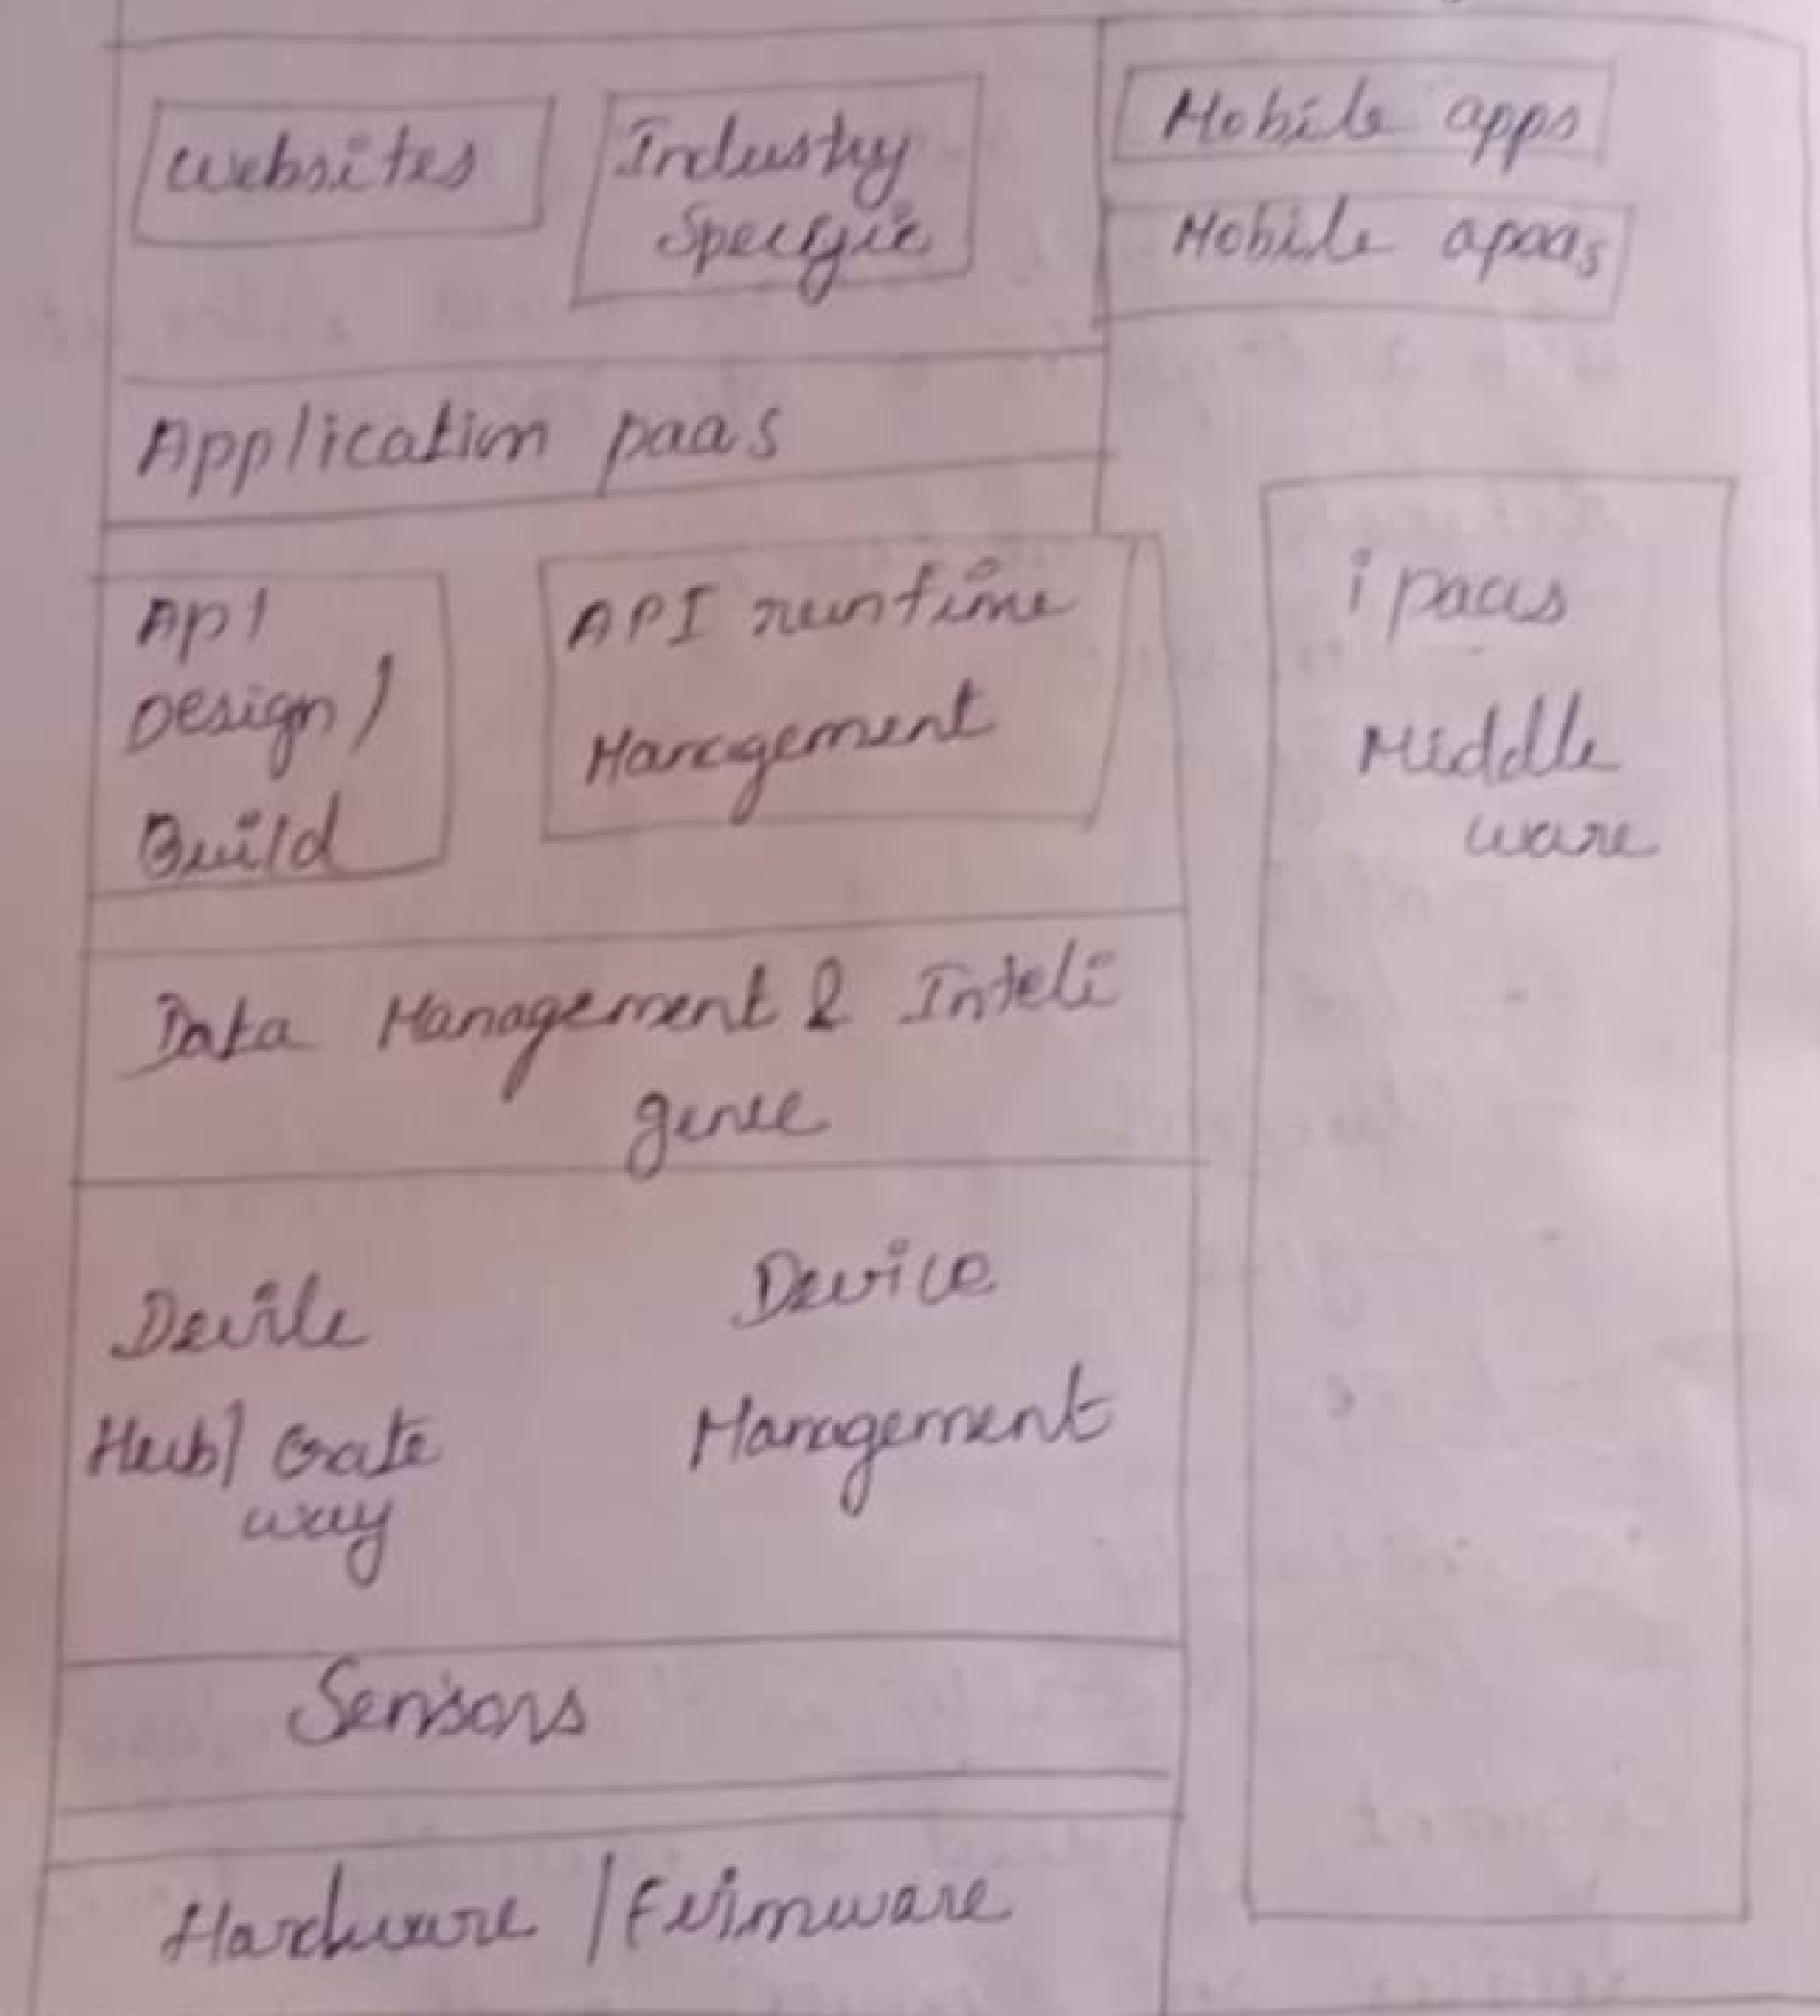 websites
Industry
Specific
Mobile apps
Mobile apaas
Application paas
Api
Design /
Build
API runtime
Management
i paas
Middle
ware
Data Management & Inteli
gence
Device
Hub/ Gate
way
Device
Management
Sensors
Hardware / Firmware